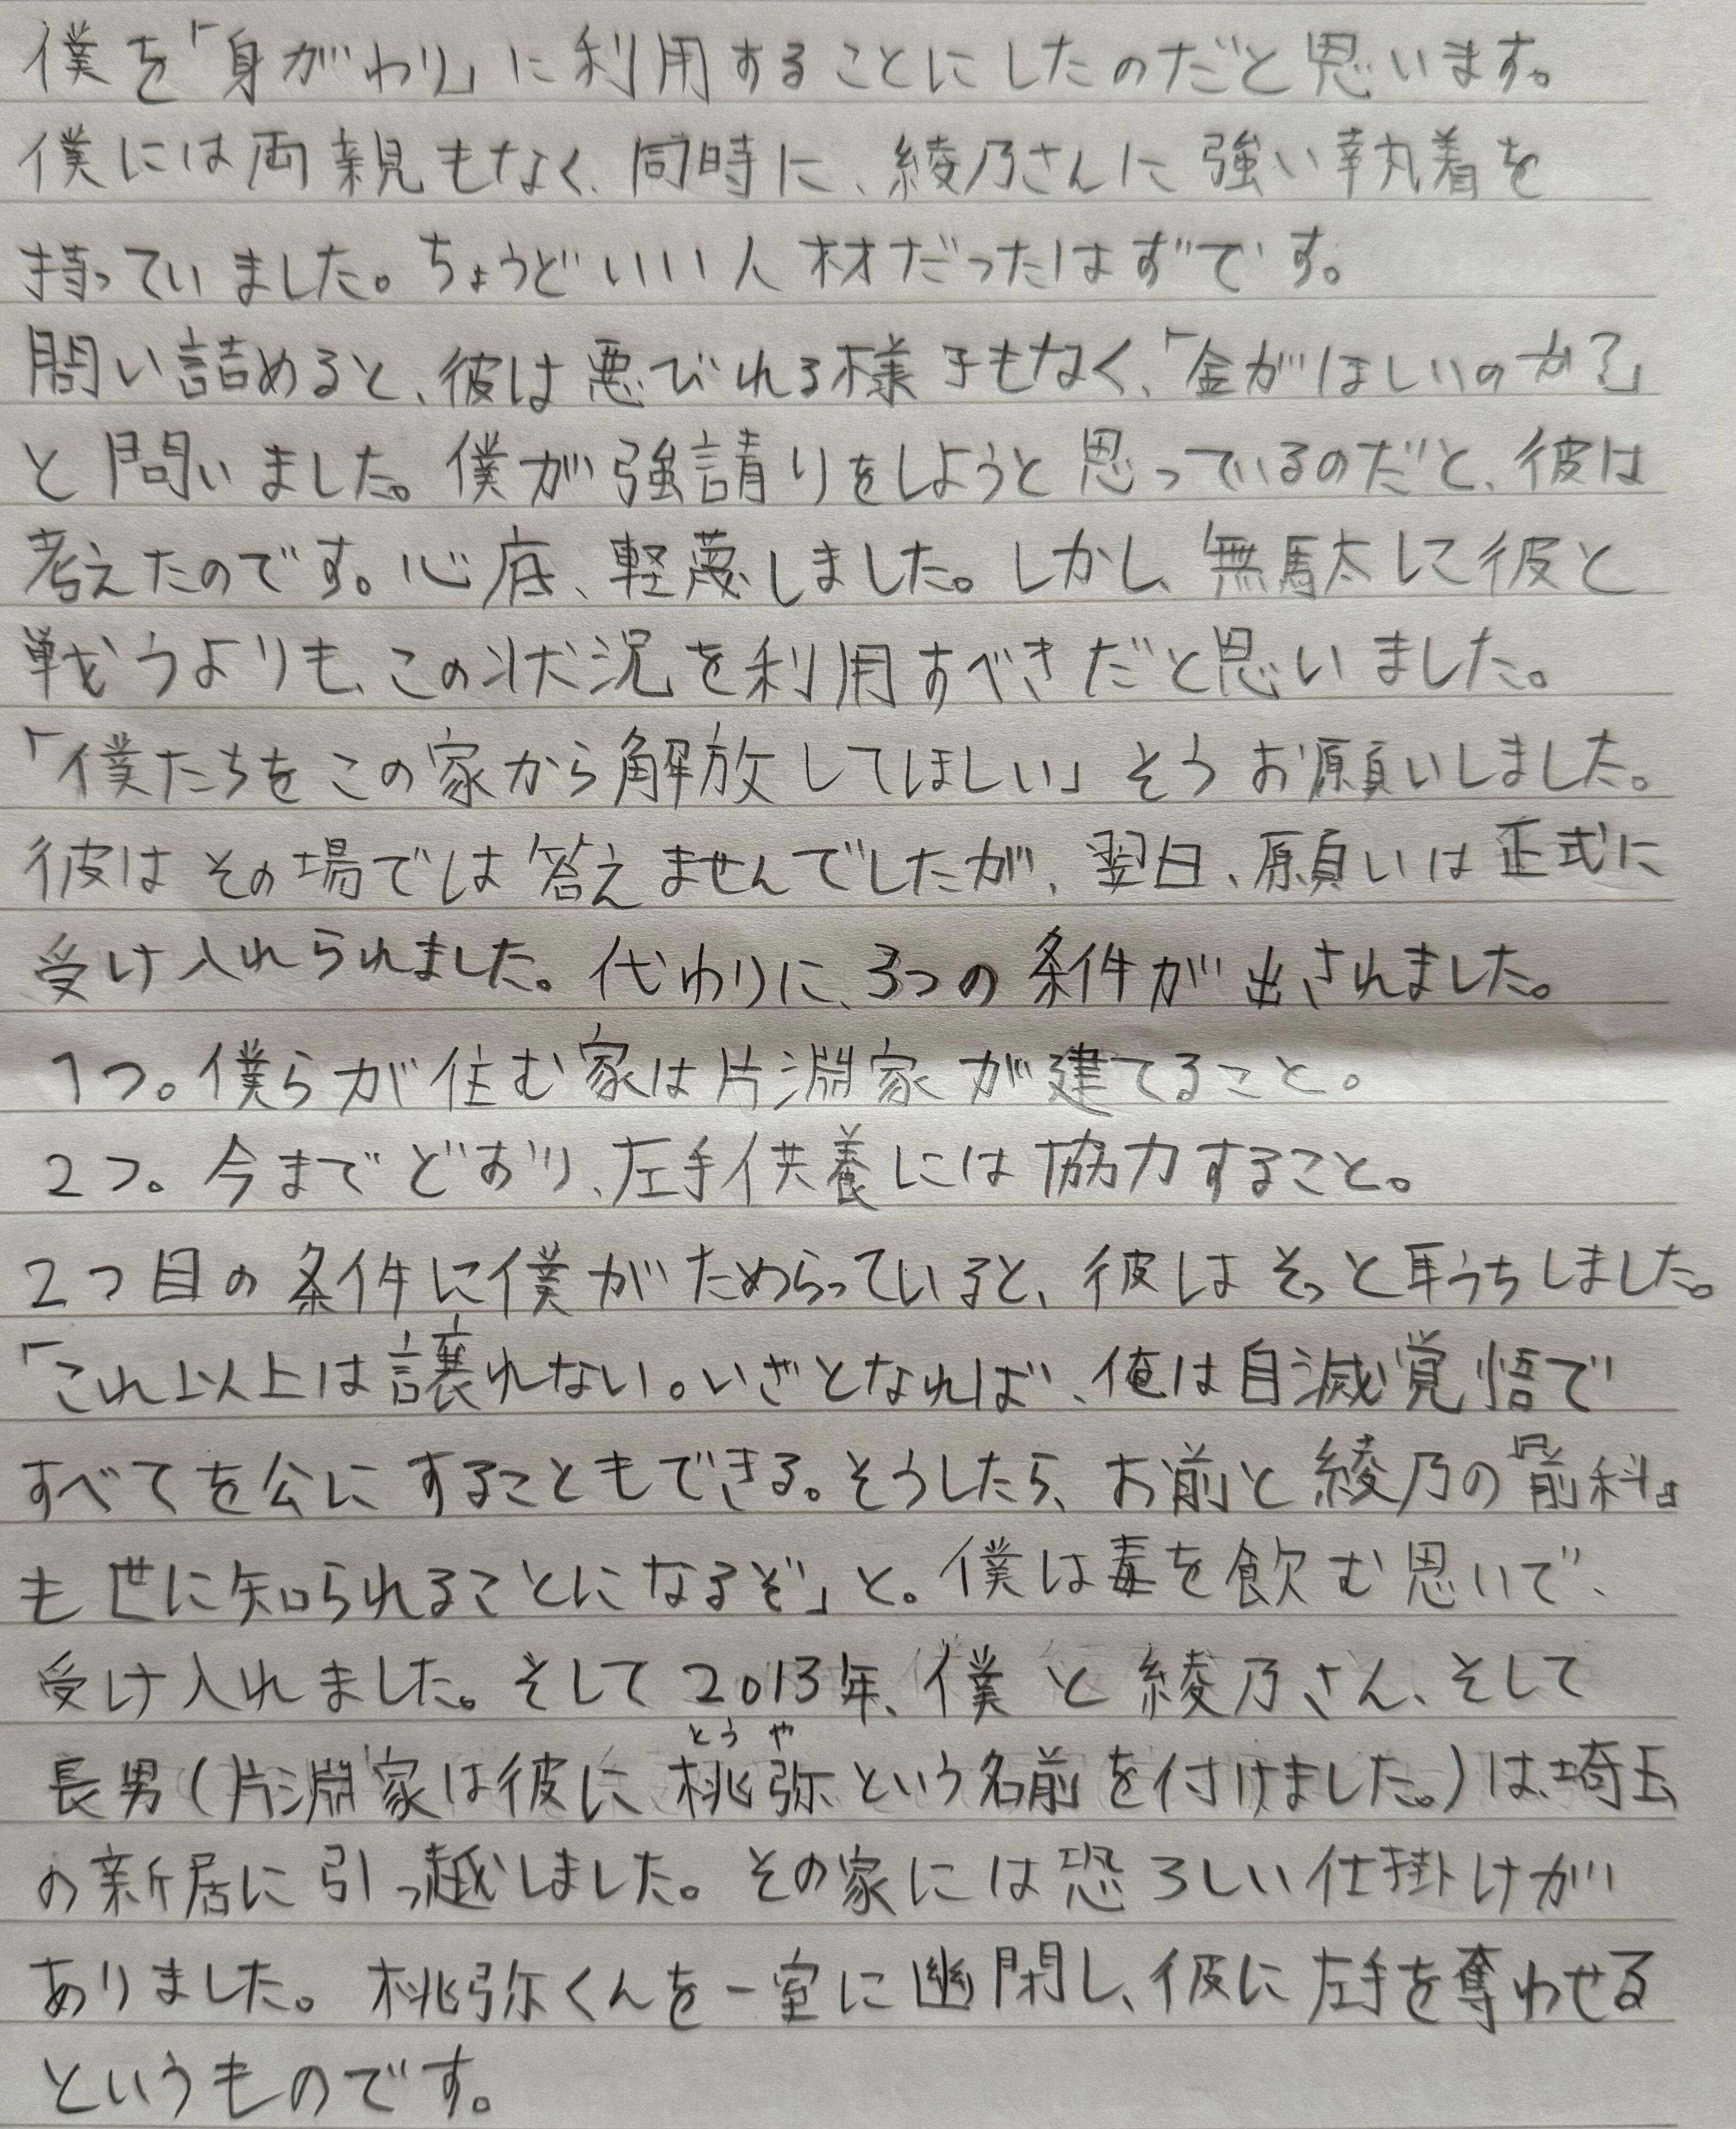 僕を「身がわり」に利用することにしたのだと思います。
僕には両親もなく、同時に、綾乃さんに強い執着を
持っていました。ちょうどいい人材だったはずです。
問い詰めると、彼は悪びれる様子もなく、「金がほしいのか?」
と問いました。僕が強請りをしようと思っているのだと、彼は
考えたのです。心底、軽蔑しました。しかし、無駄して彼と
戦うよりも、この状況を利用すべきだと思いました。
「僕たちをこの家から解放してほしい」そうお願いしました。
彼はその場では答えませんでしたが、翌日、願いは正式に
受け入れられました。代わりに、3つの条件が出されました。
1つ。僕らが住む家は片淵家が建てること。
2つ。今までどおり、左手供養には協力すること。
2つ目の条件に僕がためらっていると、彼はそっと耳うちしました。
「これ以上は譲れない。いざとなれば、俺は自滅覚悟で
すべてを公にすることもできる。そうしたら、お前と綾乃の『前科』
も世に知られることになるぞ」と。僕は毒を飲む思いで、
受け入れました。そして2013年、僕と綾乃さん、そして
長男(片淵家は彼に桃弥とうやという名前を付けました。)は、埼玉
の新居に引っ越しました。その家には恐ろしい仕掛けが
ありました。桃弥くんを一室に幽閉し、彼に左手を奪わせる
というものです。